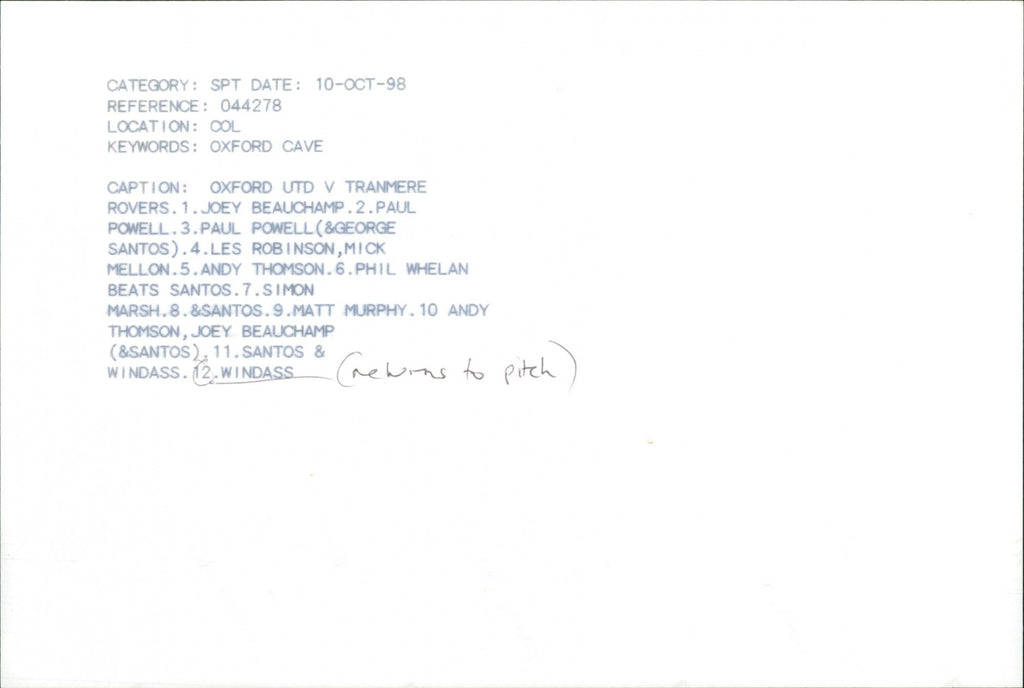 CATEGORY: SPT DATE: 10-OCT-98
REFERENCE: 044278
LOCATION: COL
KEYWORDS: OXFORD CAVE
CAPTION: OXFORD UTD V TRANMERE
ROVERS.1.JOEY BEAUCHAMP.2.PAUL
POWELL.3.PAUL POWELL(&GEORGE
SANTOS).4.LES ROBINSON,MICK
MELLON.5.ANDY THOMSON.6.PHIL WHELAN
BEATS SANTOS.7.SIMON
MARSH.8.&SANTOS.9.MATT MURPHY.10 ANDY
THOMSON,JOEY BEAUCHAMP
(&SANTOS).11.SANTOS &
WINDASS.12.WINDASS (returns to pitch)